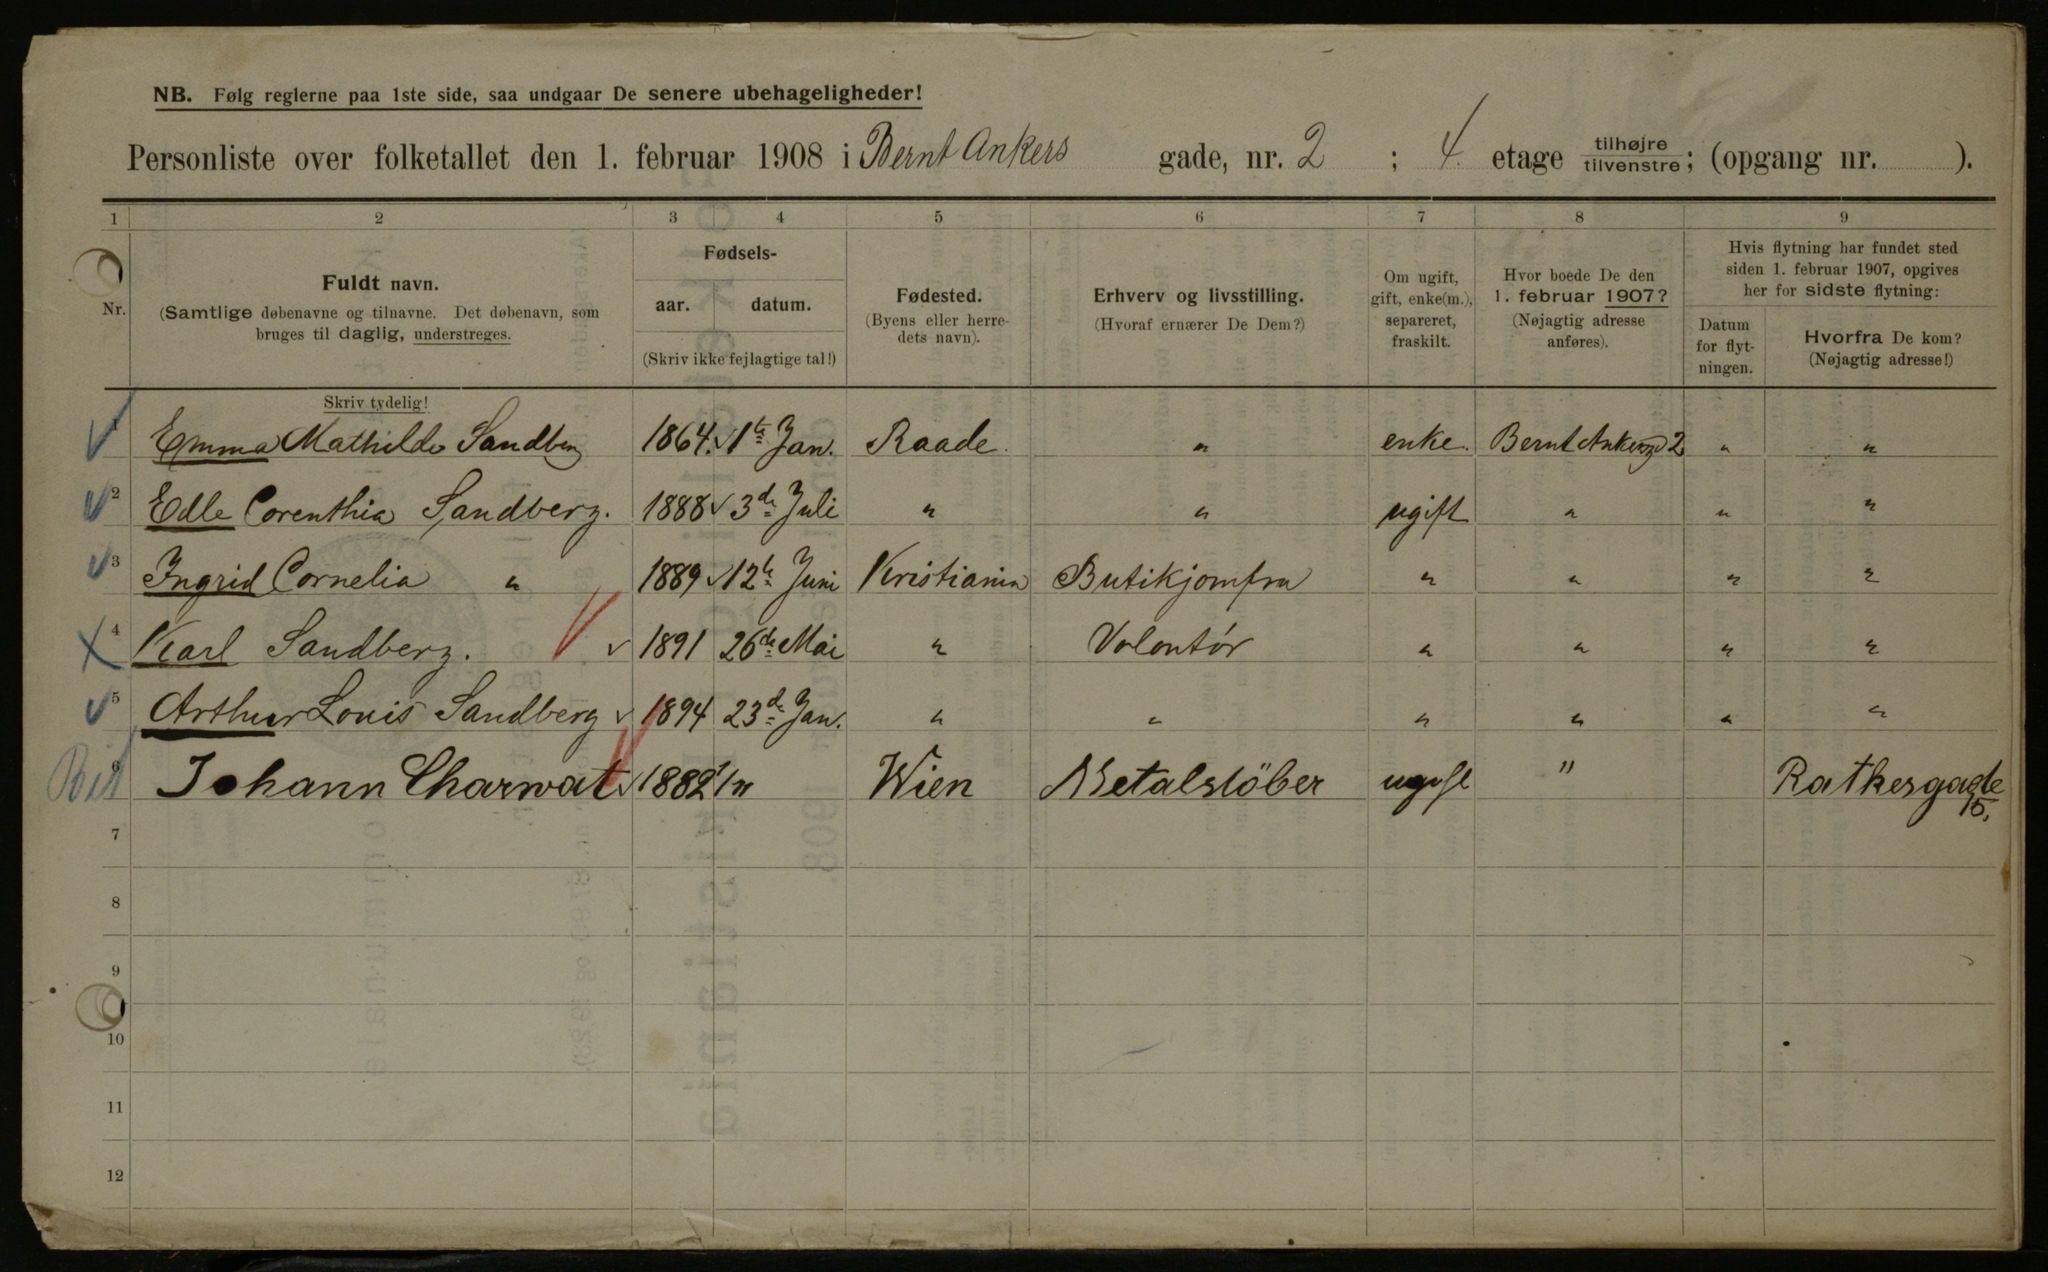 NB. Følg reglerne paa 1ste side, saa undgaar De senere ubehageligheder!
Personliste over folketallet den 1. februar 1908 i Bernt Ankers gade, nr. 2 ; 4. etage tilhøjre tilvenstre; (opgang nr. ).
1 2 3 4 5 6 7 8 9
Nr.
Fuldt navn.
(Samtlige døbenavne og tilnavne. Det døbenavn, som
bruges til daglig, understreges.
Skriv tydelig!
Fødsels-
aar. datum.
(Skriv ikke fejlagtige tal!)
Fødested.
(Byens eller herre-
dets navn).
Erhverv og livsstilling.
(Hvoraf ernærer De Dem?)
Om ugift,
gift, enke(m.),
separeret,
fraskilt.
Hvor boede De den
1. februar 1907?
(Nøjagtig adresse
anføres).
Hvis flytning har fundet sted
siden 1. februar 1907, opgives
her for sidste flytning:
Datum
for flyt-
ningen.
Hvorfra De kom?
(Nøjagtig adresse!)
1 Emma Mathilde Sandberg 1864. 1te Jan. Raade. " enke. Bernt Ankersg 2 " "
2 Edle Corenthia Sandberg. 1888 3de Juli " " ugift " " "
3 Ingrid Cornelia " 1889 12te Juni Kristiania Butikjomfru " " " "
4 Karl Sandberg. 1891 26de Mai " Volontór " " " "
5 Arthur Louis Sandberg 1894 23de Jan. " " " " " "
6 Johann Charwat 1882 Wien Metalstöber ugift " Ratkesgade
15.
7
8
9
10
11
12